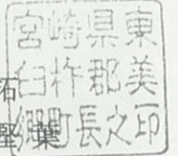 宮崎県東
臼杵郡美
郷町長之印
石